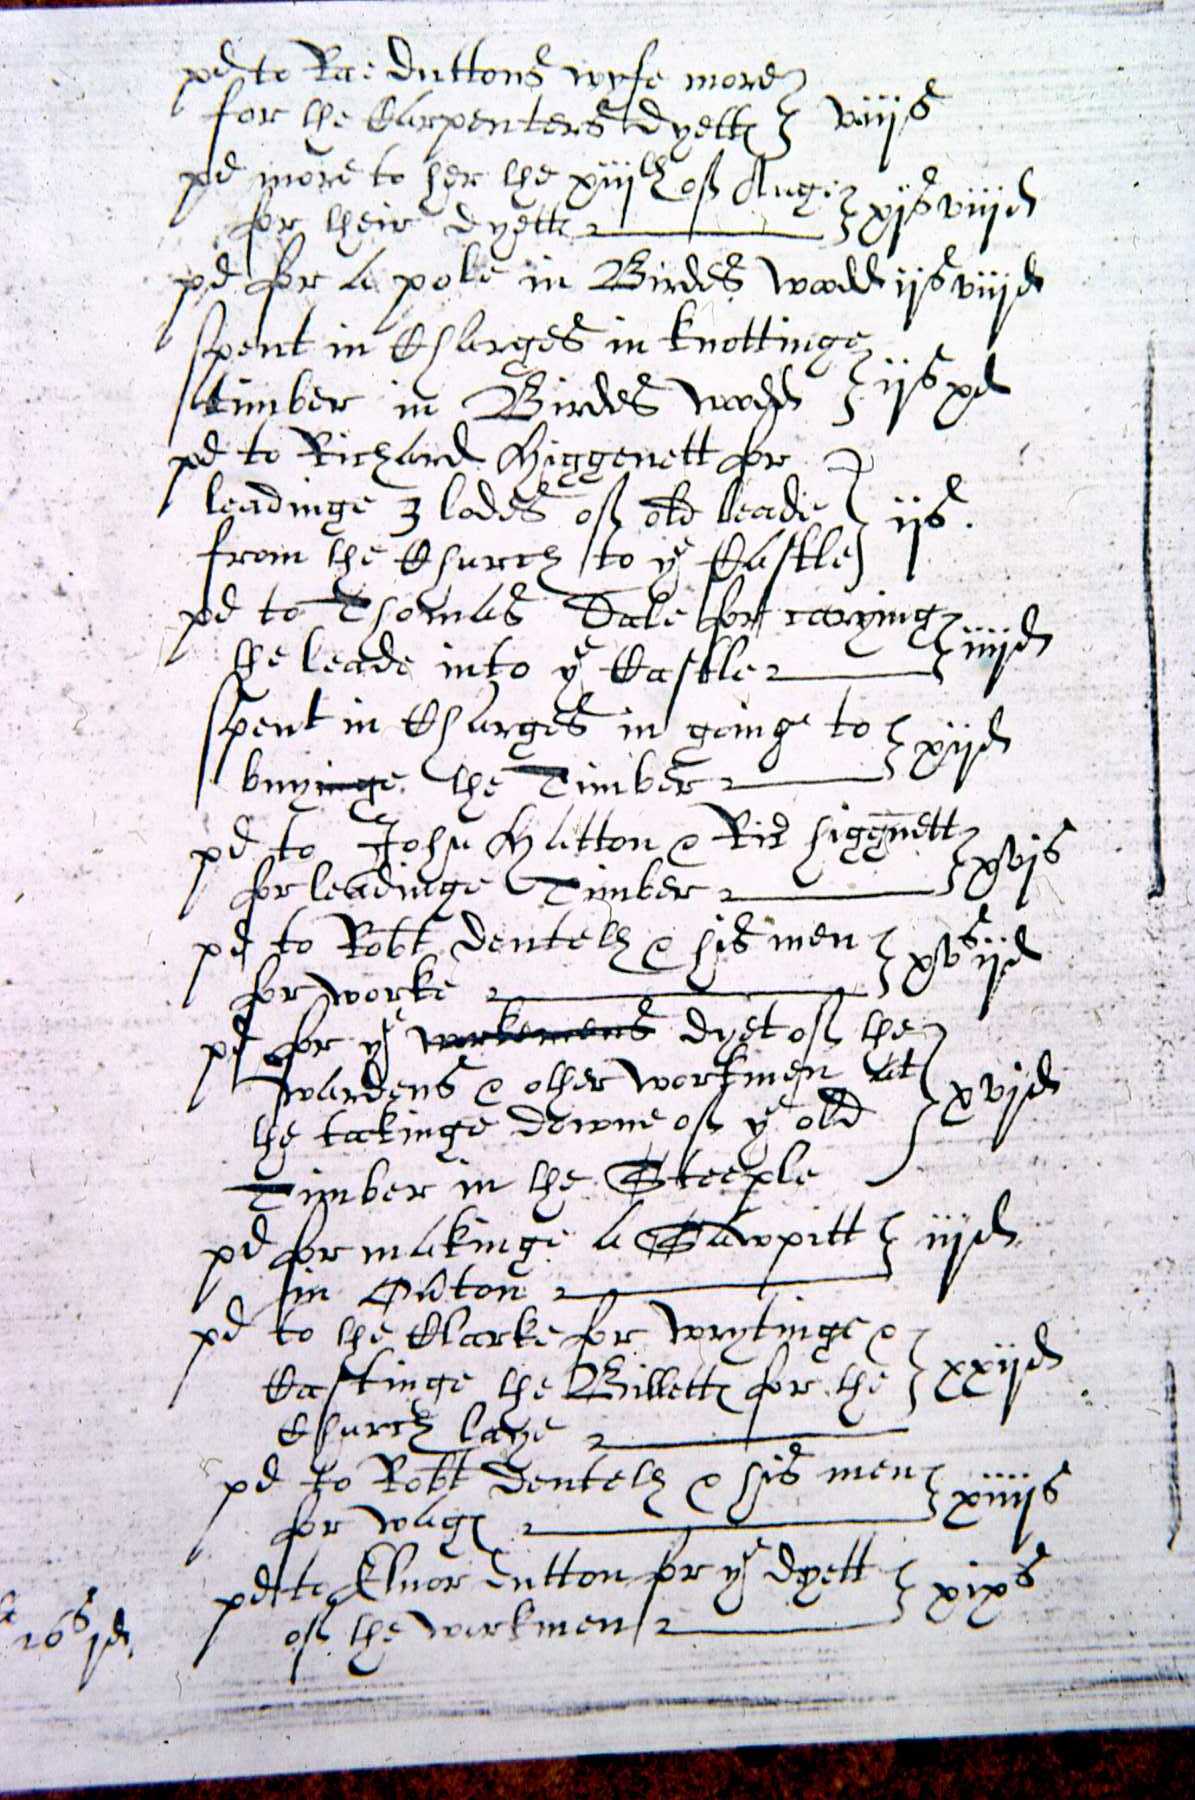 pd to Rae Duttons wyfe more
for the Carpenters dyett viijs
pd more to her the xiijth of Auge
for their dyett xjs viijd
pd for a pole in Birdes wodd ijs viijd
spent in Charges in knottinge
timber in Birdes wodd ijs xd
pd to Richard Higgenett for
leadinge 3 lodes of old leade
from the Church to ye Castle ijs.
pd to Thomas Dale for carying
the leade into ye Castle iiijd
spent in Charges in going to
buyinge the Timber xijd
pd to John Hatton & Ric higgnett
for leadinge Timber xvjs
pd to Robt Dentelh & his men
for worke xvs ijd
pd for ye workemens dyet of the
wardens & other workmen at
the takinge downe of ye old xvjd
Timber in the Steeple
pd for makinge a Sawpitt iijd
in Eaton
pd to the Clarke for wrytinge &
Castinge the Billett for the xxijd
Church laye
pd to Robt Dentelh & his men
for wages xiiijs
pd to Elnor dutton for ye dyett
of the workmen xixs
16s jd.